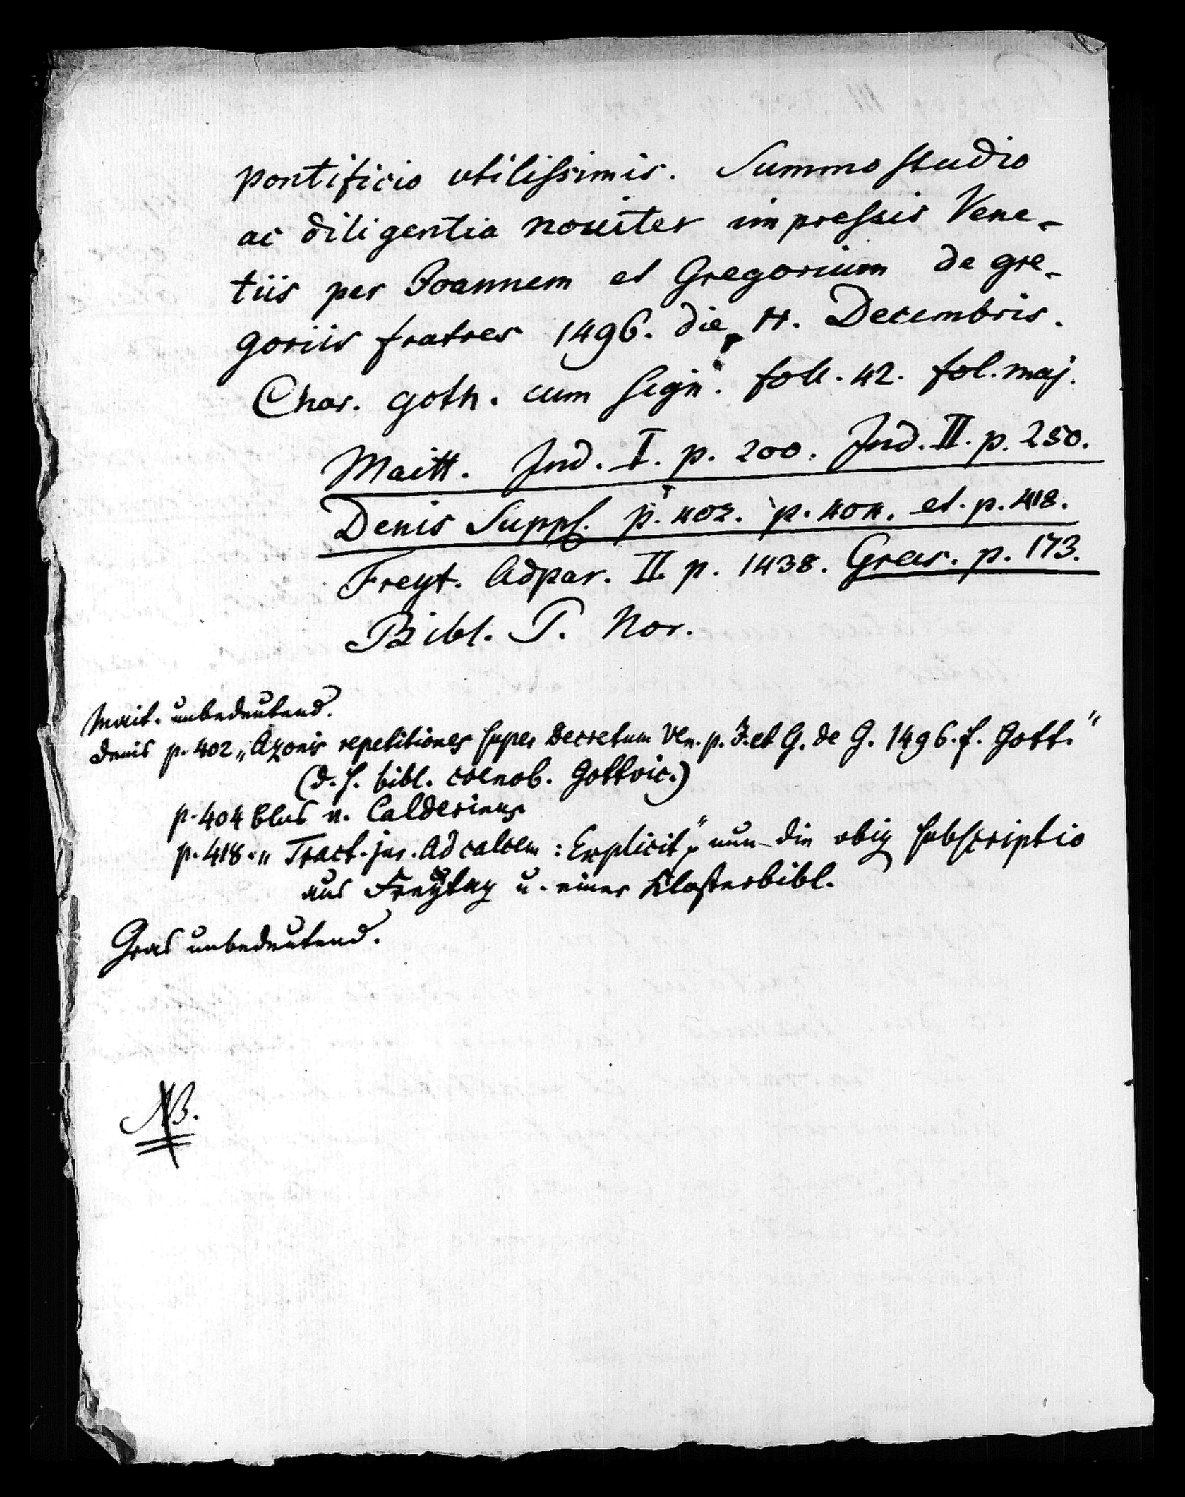 pontificio vtilissimis. Summo studio
ac diligentia nouiter impressis Vene-
tiis per Joannem et Gregorium de gre-
goriis fratres 1496. die 4. Decembris.
Char. goth. cum sign. foll. 42. fol. maj.
Maitt. Ind. I. p. 200. Ind. II. p. 250.
Denis Suppl. p. 402. p. 404. et. p. 418.
Freyt. Adpar. II. p. 1438. Gras. p. 173.
Bibl. P. Nor.
Mait. unbedeutend.
Denis p. 402 „Azonis repetitiones super Decretum Ven. p. J. et G. de G. 1496. f. Gott."
(d. h. bibl. coenob. Gottvic.)
p. 404 blos v. Calderinus
p. 418. „Tract. jur. Ad calcem: Explicit", nun die obig subscriptio
aus Freytag u. einer Klosterbibl.
Gras unbedeutend.
NB.